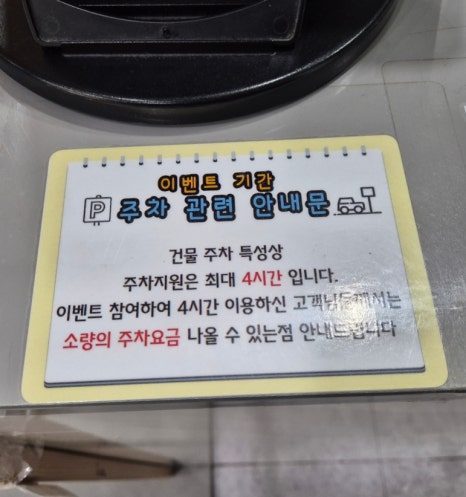 이벤트 기간
P 주차 관련 안내문
건물 주차 특성상
주차지원은 최대 4시간 입니다.
이벤트 참여하여 4시간 이용하신 고객님들께서는
소량의 주차요금 나올 수 있는점 안내드립니다